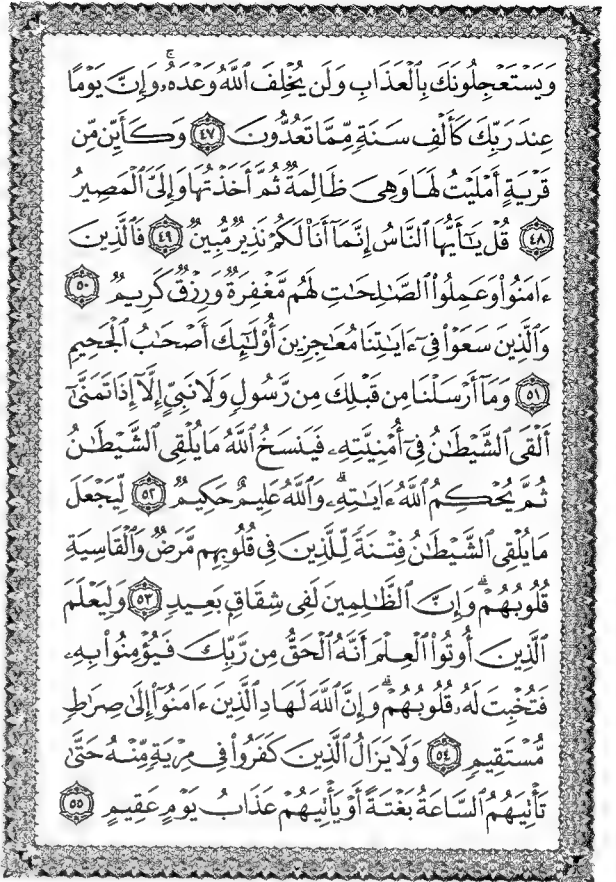 وَيَسْتَعْجِلُونَكَ بِالْعَذَابِ وَلَن يُخْلِفَ اللَّهُ وَعْدَهُۥ ۚ وَإِنَّ يَوْمًا
عِندَ رَبِّكَ كَأَلْفِ سَنَةٍ مِّمَّا تَعُدُّونَ ٤٧ وَكَأَيِّن مِّن
قَرْيَةٍ أَمْلَيْتُ لَهَا وَهِىَ ظَالِمَةٌ ثُمَّ أَخَذْتُهَا وَإِلَىَّ الْمَصِيرُ
٤٨ قُلْ يَٰٓأَيُّهَا النَّاسُ إِنَّمَآ أَنَا۠ لَكُمْ نَذِيرٌ مُّبِينٌ ٤٩ فَالَّذِينَ
ءَامَنُوا۟ وَعَمِلُوا۟ الصَّٰلِحَٰتِ لَهُم مَّغْفِرَةٌ وَرِزْقٌ كَرِيمٌ ٥٠
وَالَّذِينَ سَعَوْا۟ فِىٓ ءَايَٰتِنَا مُعَٰجِزِينَ أُو۟لَٰٓئِكَ أَصْحَٰبُ الْجَحِيمِ
٥١ وَمَآ أَرْسَلْنَا مِن قَبْلِكَ مِن رَّسُولٍ وَلَا نَبِىٍّ إِلَّآ إِذَا تَمَنَّىٰٓ
أَلْقَى الشَّيْطَٰنُ فِىٓ أُمْنِيَّتِهِۦ فَيَنسَخُ اللَّهُ مَا يُلْقِى الشَّيْطَٰنُ
ثُمَّ يُحْكِمُ اللَّهُ ءَايَٰتِهِۦ ۗ وَاللَّهُ عَلِيمٌ حَكِيمٌ ٥٢ لِّيَجْعَلَ
مَا يُلْقِى الشَّيْطَٰنُ فِتْنَةً لِّلَّذِينَ فِى قُلُوبِهِم مَّرَضٌ وَالْقَاسِيَةِ
قُلُوبُهُمْ ۗ وَإِنَّ الظَّٰلِمِينَ لَفِى شِقَاقٍ بَعِيدٍ ٥٣ وَلِيَعْلَمَ
الَّذِينَ أُوتُوا۟ الْعِلْمَ أَنَّهُ الْحَقُّ مِن رَّبِّكَ فَيُؤْمِنُوا۟ بِهِۦ
فَتُخْبِتَ لَهُۥ قُلُوبُهُمْ ۗ وَإِنَّ اللَّهَ لَهَادِ الَّذِينَ ءَامَنُوٓا۟ إِلَىٰ صِرَٰطٍ
مُّسْتَقِيمٍ ٥٤ وَلَا يَزَالُ الَّذِينَ كَفَرُوا۟ فِى مِرْيَةٍ مِّنْهُ حَتَّىٰ
تَأْتِيَهُمُ السَّاعَةُ بَغْتَةً أَوْ يَأْتِيَهُمْ عَذَابُ يَوْمٍ عَقِيمٍ ٥٥